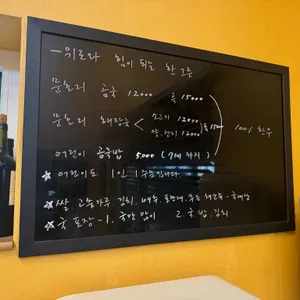 - 위로와 힘이 되는 한 그릇
문호리 곰국 12000 특 15000
문호리 해장국 < 소고기 12000 특 15000
양.선지 12000
100% 한우
어린이 곰국밥 5000 (7세 까지)
★ 어린이도 1인 1주문입니다
★ 쌀. 고춧가루. 김치. 배추.
★ 국 포장 - 1. 국만 많이 2. 국 밥. 김치